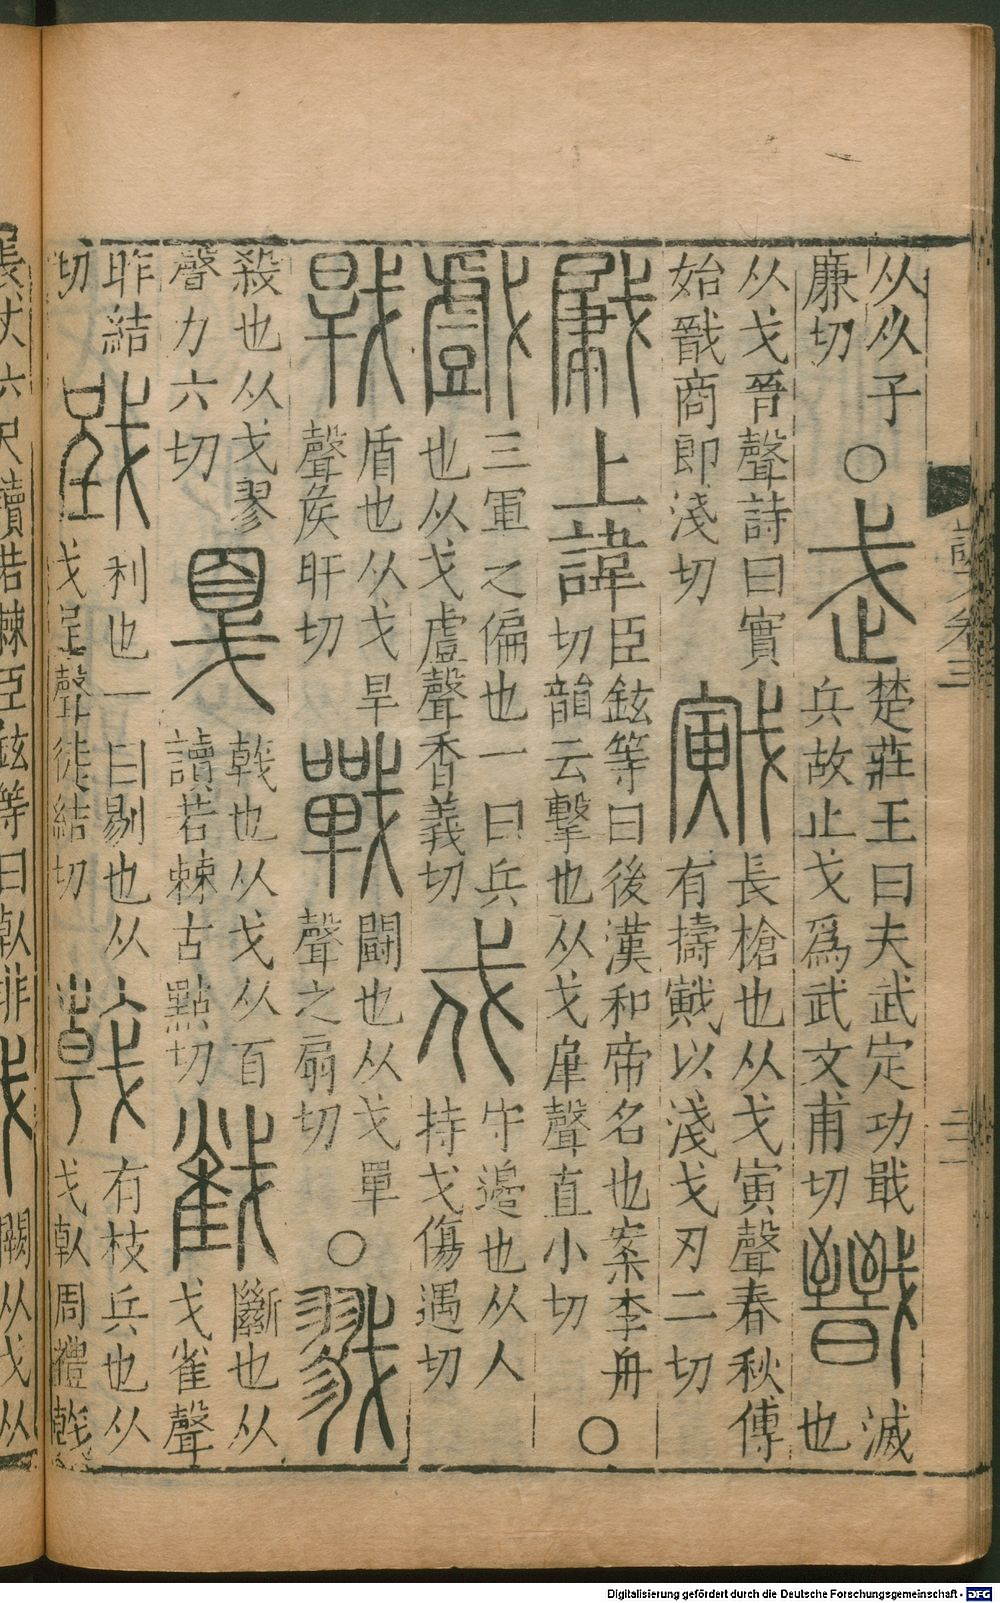 从从子
廉切
○
武
楚莊王曰夫武定功戢
兵故止戈爲武文甫切
戩
滅
也
从戈晉聲詩曰實
始戩商即淺切
戭
長槍也从戈寅聲春秋傳
有擣戭以淺戈刃二切
肈
上諱
臣鉉等曰後漢和帝名也案李舟
切韻云擊也从戈肁聲直小切
○
戲
三軍之偏也一曰兵
也从戈䖒聲香義切
戍
守邊也从人
持戈傷遇切
戰
盾也从戈旱
聲矦旰切
戰
鬭也从戈單
聲之扇切
○
戮
殺也从戈翏
聲力六切
戛
戟也从戈从百
讀若棘古黠切
𢧵
斷也从
戈雀聲
昨結
切
利也一曰剔也从
戈呈聲徒結切
戟
有枝兵也从
戈倝周禮戟
長丈六尺讀若棘臣鉉等曰倝非
闕从戈从
說文卷三
Digitalisierung gefördert durch die Deutsche Forschungsgemeinschaft - DFG